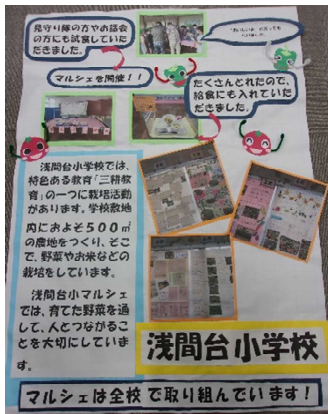 見守り隊の方やお話会
の方にも試食していた
だきました。
マルシェを開催！！
たくさんとれたので、
給食にも入れていた
だきました。
浅間台小学校では、
特色ある教育「三耕教
育」の一つに栽培活動
があります。学校敷地
内におよそ５００㎡
の農地をつくり、そこ
で、野菜やお米などの
栽培をしています。
浅間台小マルシェ
では、育てた野菜を通
して、人とつながるこ
とを大切にしていま
す。
浅間台小学校
マルシェは全校で取り組んでいます！